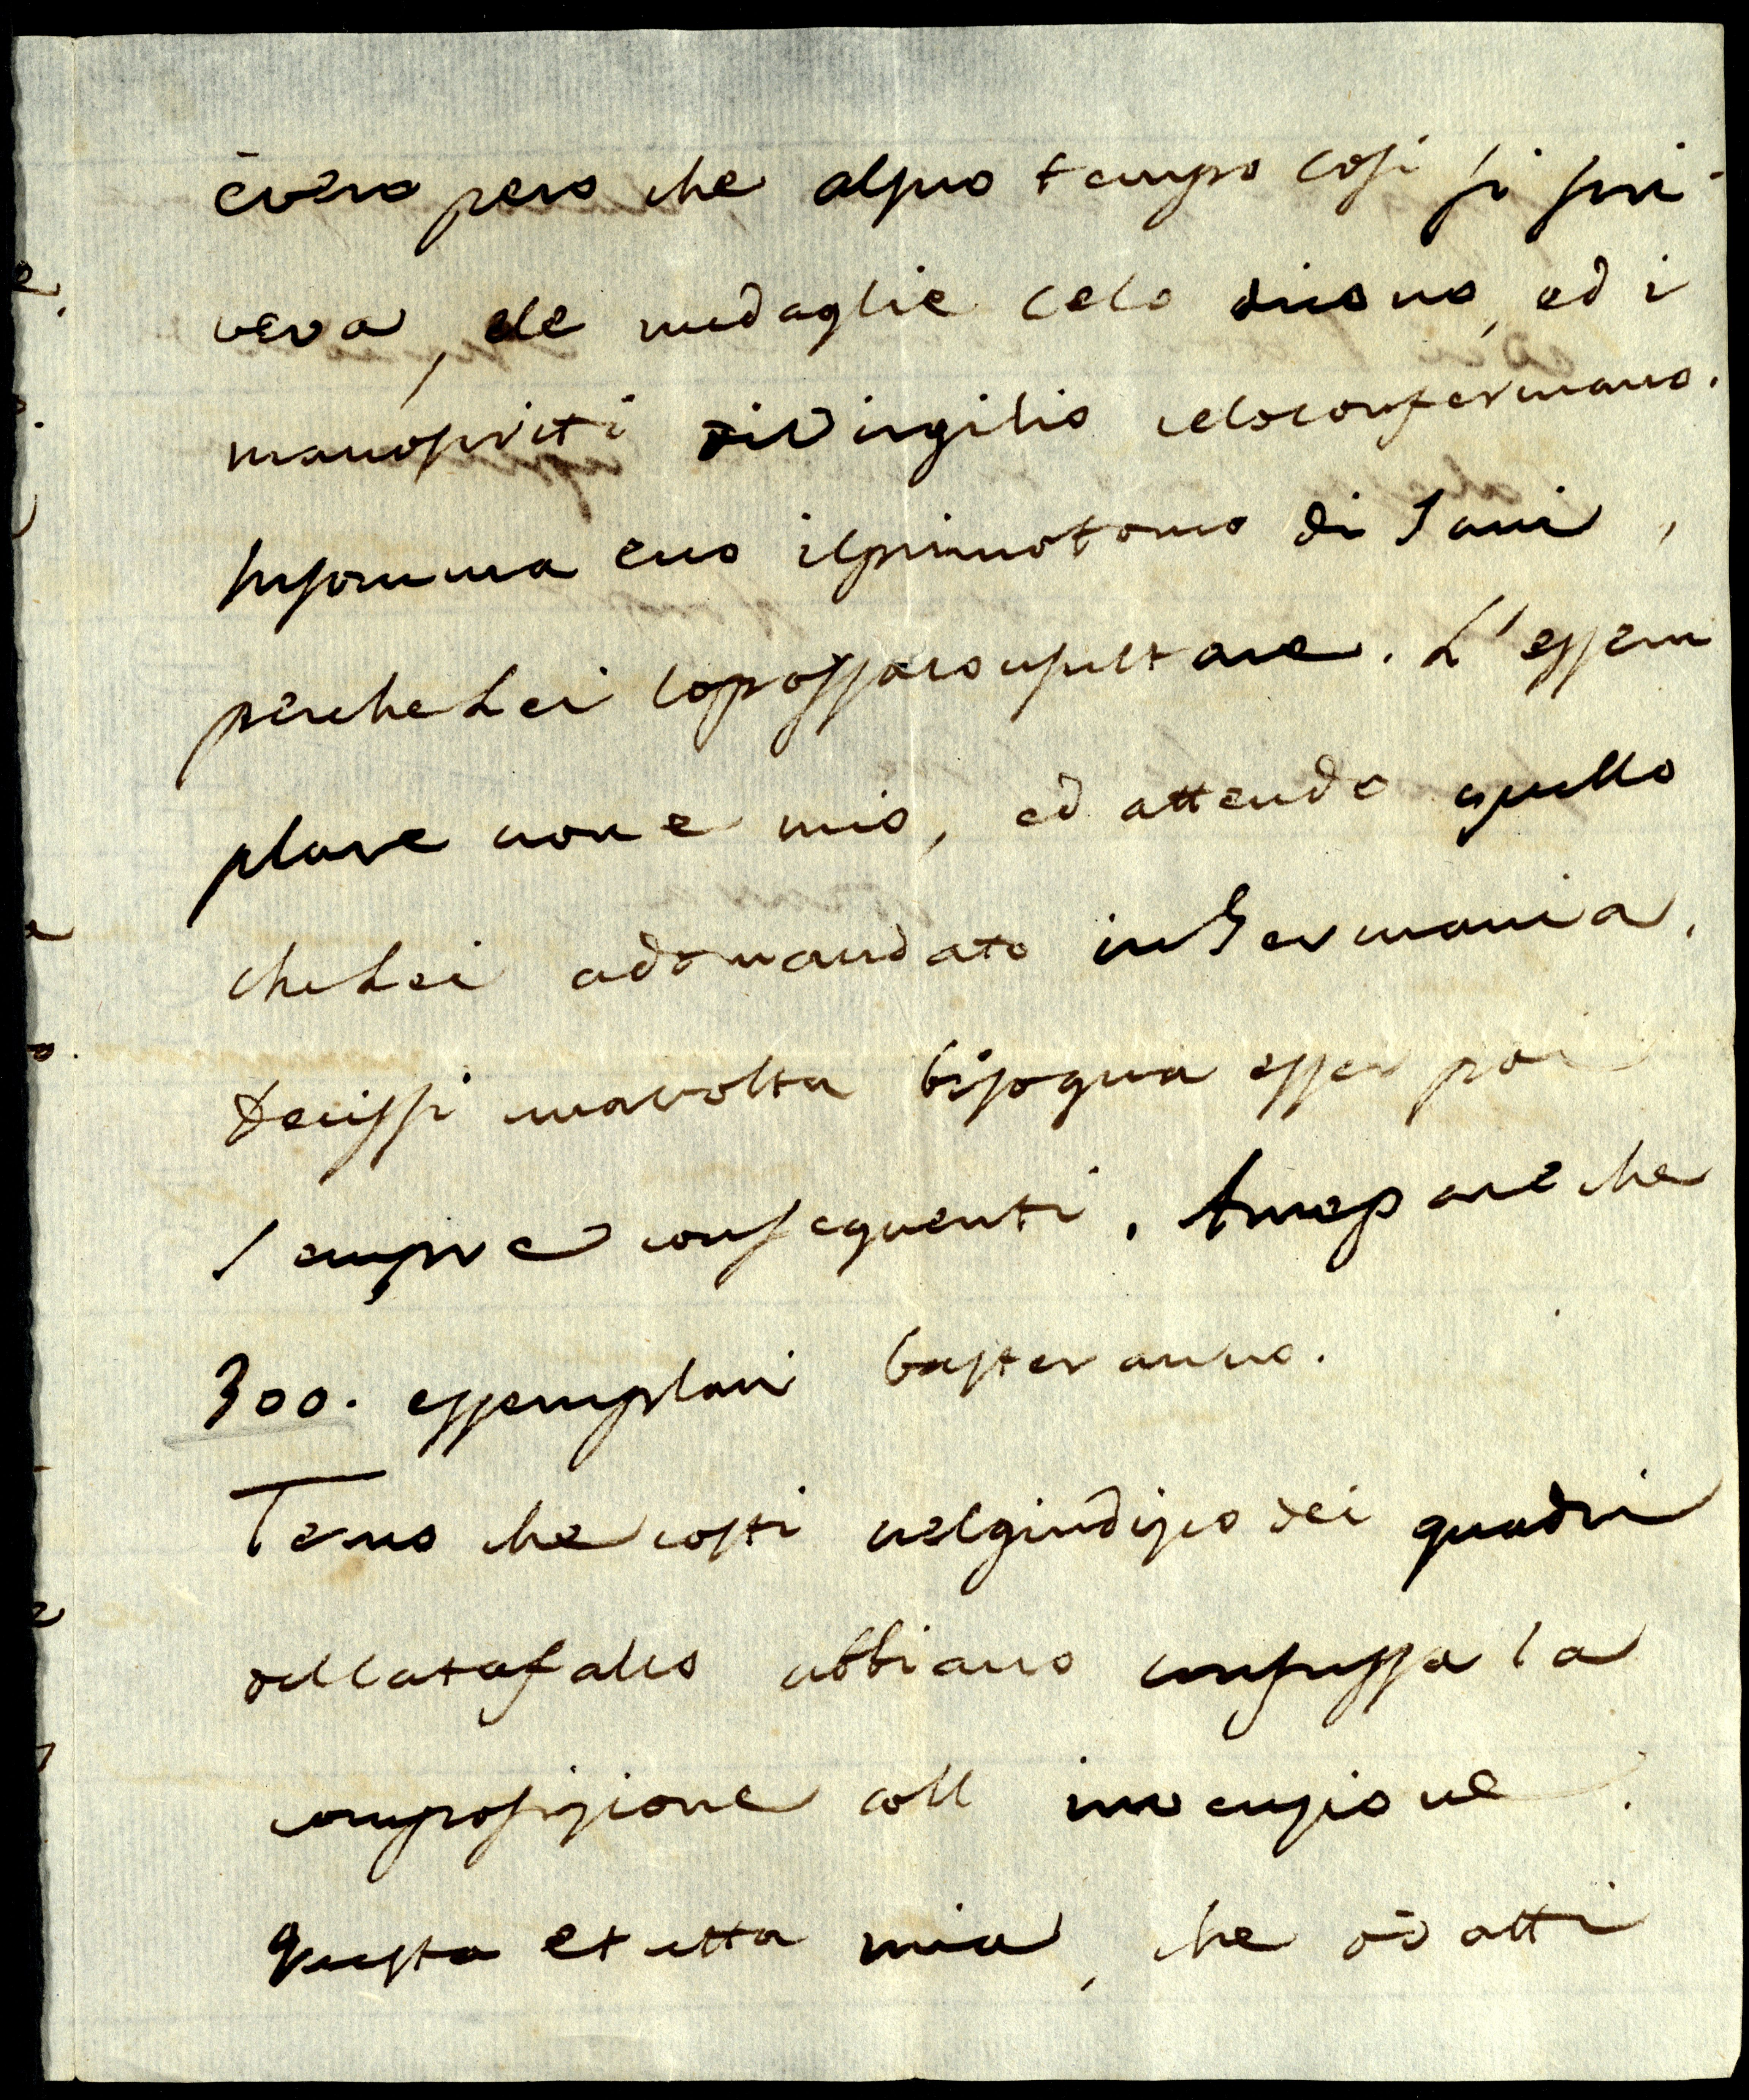 èvero pero che alsuo tempo così si scri-
veva, ele medaglie celo dicono, ed i
manoscritti diVirgilio celoconfermano.
Insomma ecco ilprimotomo di Jani,
percheLei loposсaconsultare. L'essem
plare non e mio, ed attendo quello
cheLei adomandato inGermania.
decissi unavolta bisogna esser poi
sempre consequenti. Amepare che
300. essemplari basteranno.
Temo che costi nelgiudizio dei quadri
delcatafalco abbiano confussa la
composizione coll invenzione.
Questa etutta mia, che ò datti